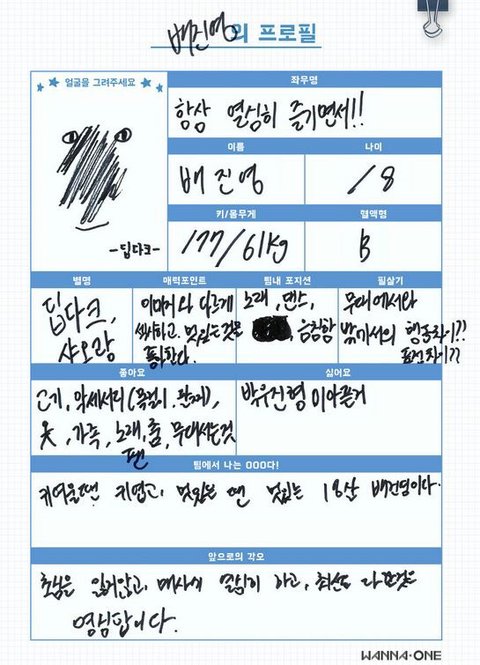 배진영의 프로필
얼굴을 그려주세요
-딥다크-
좌우명
항상 열심히 즐기면서!!
이름
나이
배진영
18
키/몸무게
혈액형
177/61kg
B
별명
매력포인트
팀내 포지션
필살기
딥다크,
샤오랑
이미지와 다르게
섹시하고, 멋있는 것도
통한다.
노래, 댄스,
음침함
무대에서와
밖에서의 행동차이??
표정차이??
좋아요
싫어요
고기, 악세서리(목걸이, 팔찌),
옷, 가족, 노래, 춤, 무대서는것
팬
박우진형이아픈거
팀에서 나는 OOO다!
귀여울땐 귀엽고, 멋있을 땐 멋있는 18살 배진영이다.
앞으로의 각오
초심을 잃지않고, 매사에 열심히 하고, 최선을 다
영입니다.
WANNA·ONE